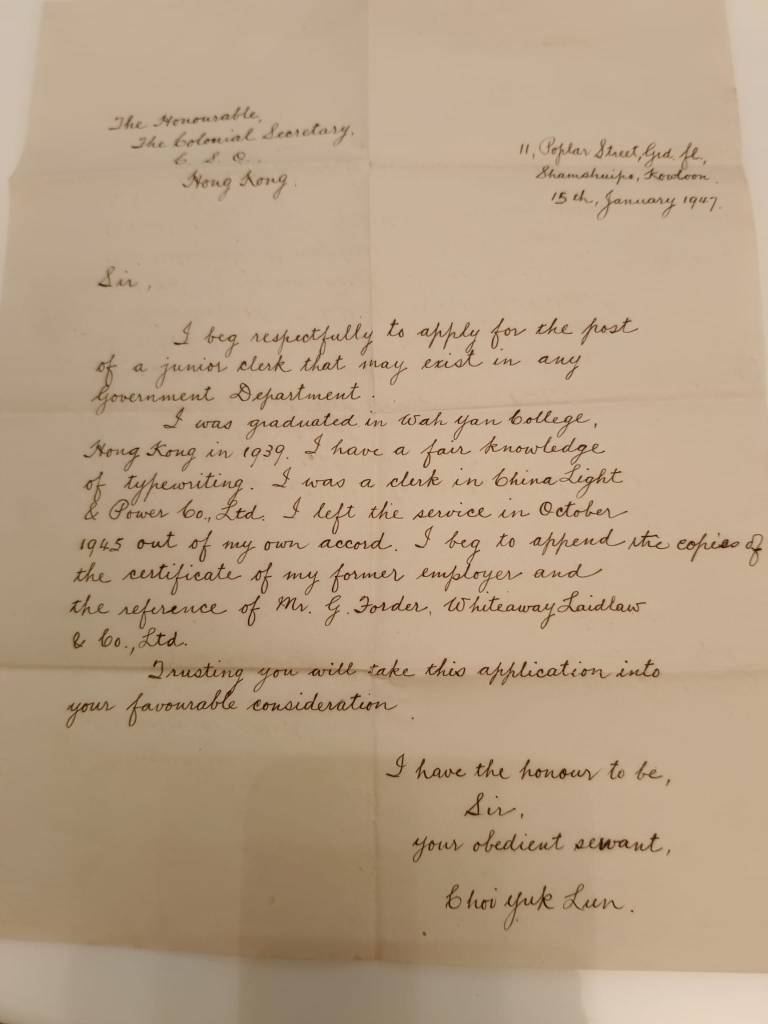 The Honourable,
The Colonial Secretary,
C. S. O.
Hong Kong.
11, Poplar Street, Grd. fl.,
Shamshuipo, Kowloon.
15th, January 1947.
Sir,
I beg respectfully to apply for the post
of a junior clerk that may exist in any
Government Department.
I was graduated in Wah Yan College,
Hong Kong in 1939. I have a fair knowledge
of typewriting. I was a clerk in China Light
& Power Co., Ltd. I left the service in October
1945 out of my own accord. I beg to append the copies of
the certificate of my former employer and
the reference of Mr. G. Forder, Whiteaway Laidlaw
& Co., Ltd.
Trusting you will take this application into
your favourable consideration
I have the honour to be,
Sir,
your obedient servant,
Choi Yuk Lun.